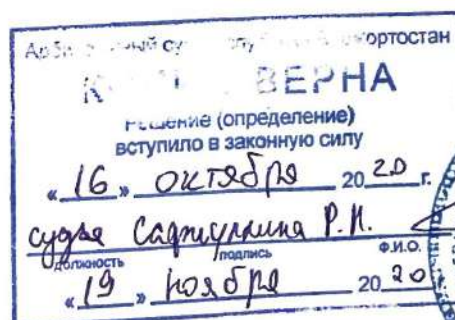 суд
ортостан
ВЕРНА
Решение (определение)
вступило в законную силу
« 16 » октября 2020 г.
судья Р.И.
должность подпись Ф.И.О.
« 19 » ноября 2020